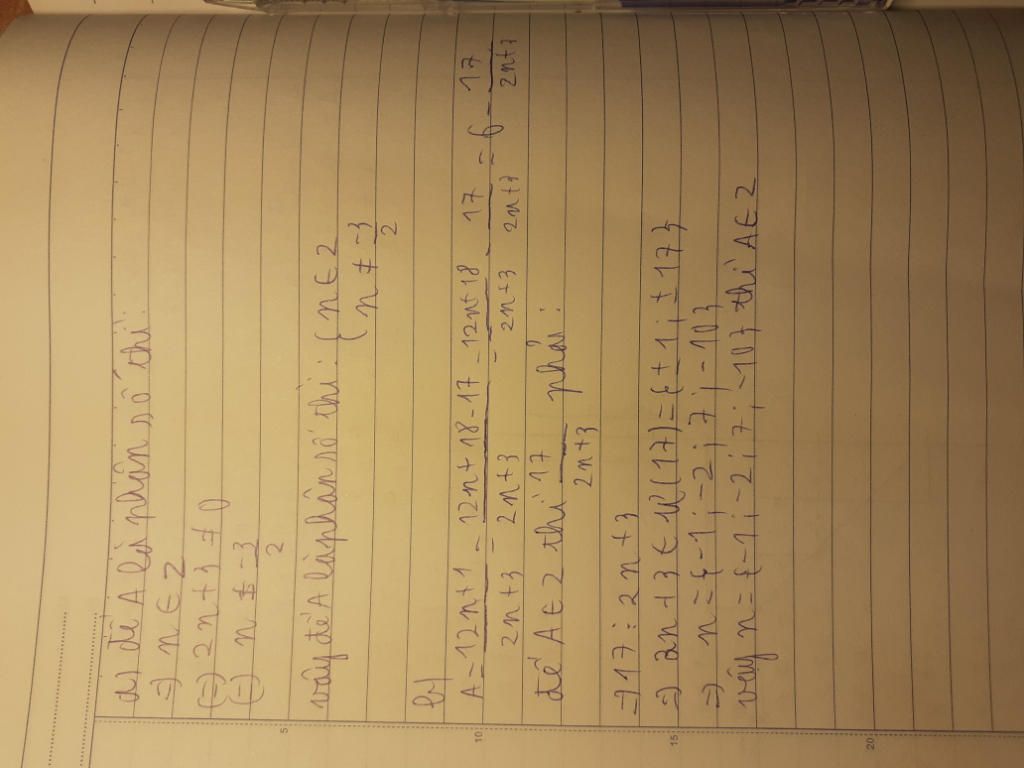 a) để A là phân số thì:
=) n ∈ Z
(=) 2n + 3 ≠ 0
(=) n ≠ -3/2
vậy để A là phân số thì: { n ∈ Z
{ n ≠ -3/2
b)
A = 12n+1/2n+3 = 12n+18-17/2n+3 = 12n+18/2n+3 - 17/2n+3 = 6 - 17/2n+3
để A ∈ Z thì 17/2n+3 phải:
=) 17 ⋮ 2n+3
=) 2n+3 ∈ Ư(17) = {±1; ±17}
=) n = {-1; -2; 7; -10}
vậy n = {-1; -2; 7; -10} thì A ∈ Z
5
10
15
20